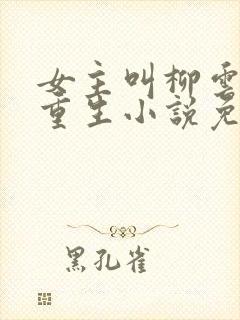 女主叫柳雲
重生小說免
黑孔雀